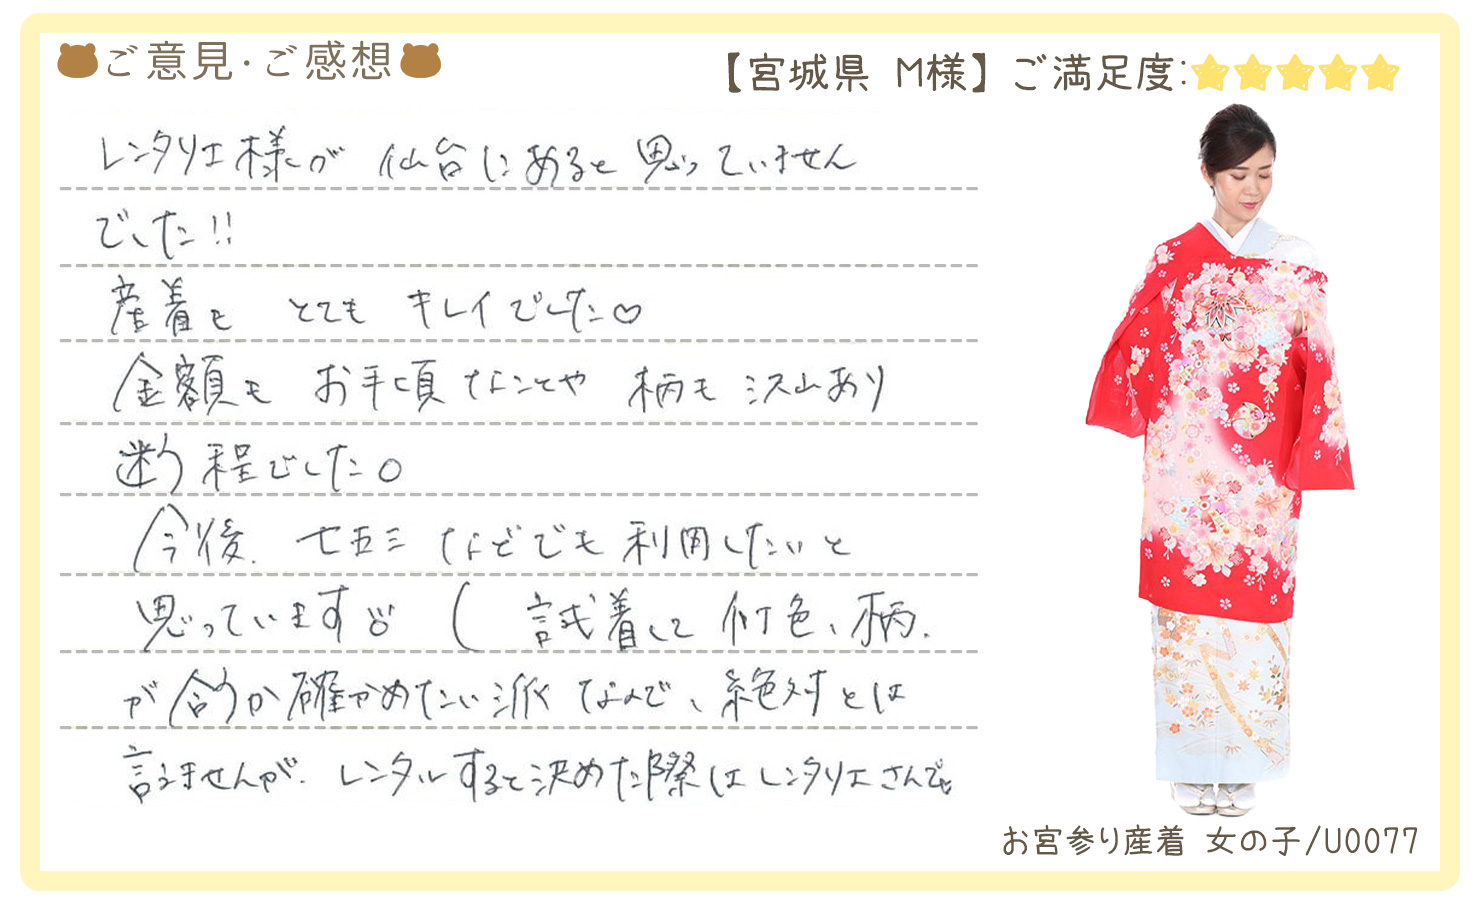 ご意見・ご感想
【宮城県 M様】ご満足度:
レンタリエ様が 仙台にあると思っていません
でした!!
産着も とても キレイでした♡
金額も お手頃なことや 柄も 沢山あり
迷う程でした。
今後、七五三 などでも 利用したいと
思っています (試着して 何色、柄、
が合うか確かめたい派なんで、絶対とは
言えませんが、レンタルすると決めた際はレンタリエさんで。
お宮参り産着 女の子/U0077